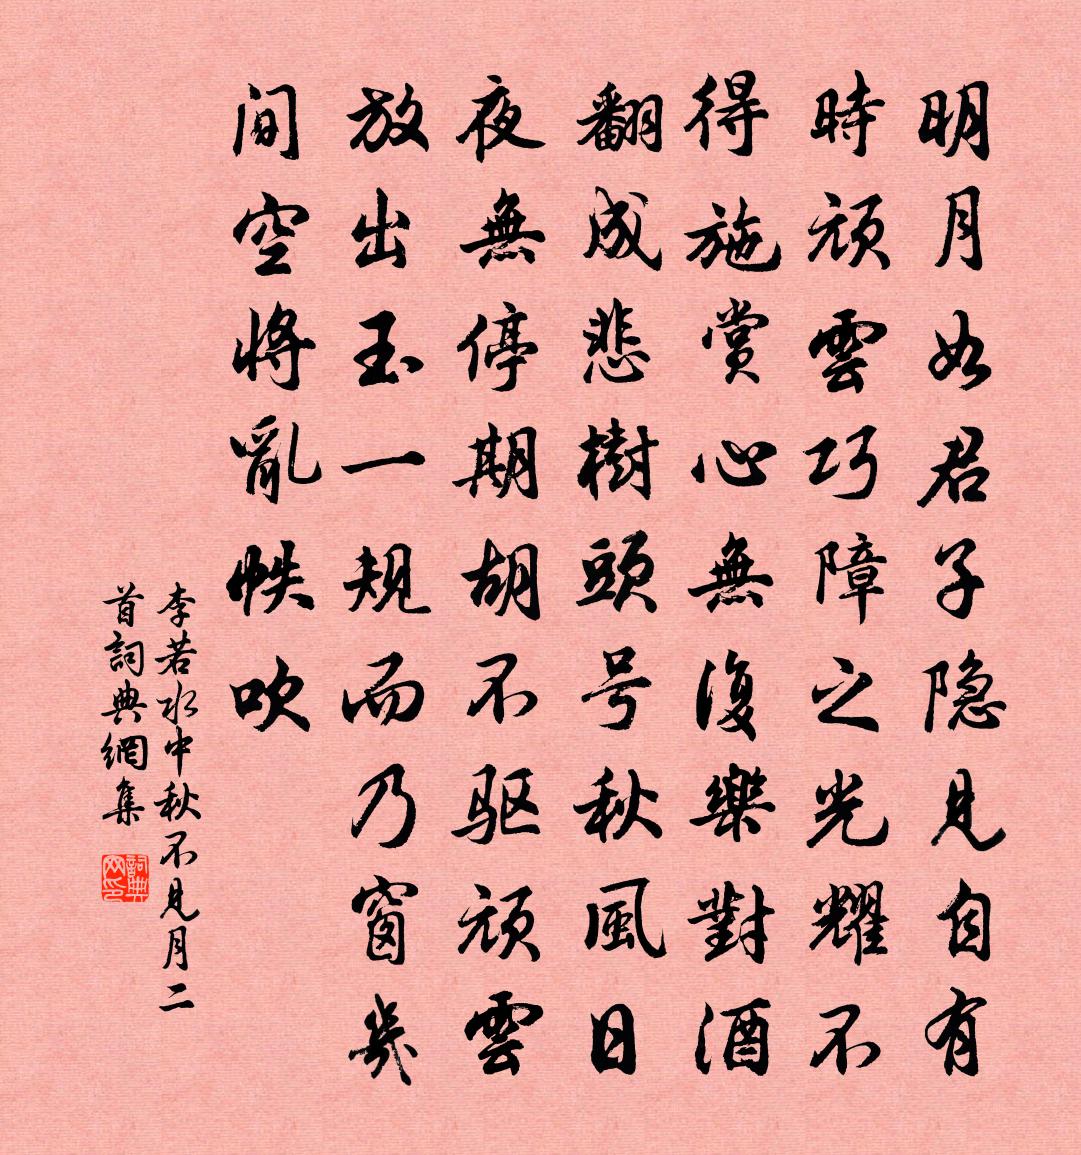 明月如君子隐見自有
時頑雲巧障之光耀不
得施賞心無復樂對酒
翻成悲樹頭号秋風日
夜無停期胡不驱頑雲
放出玉一規而乃窗幾
间空將亂帙吹
李若水中秋不見月二
首詞典網集
詞典网印